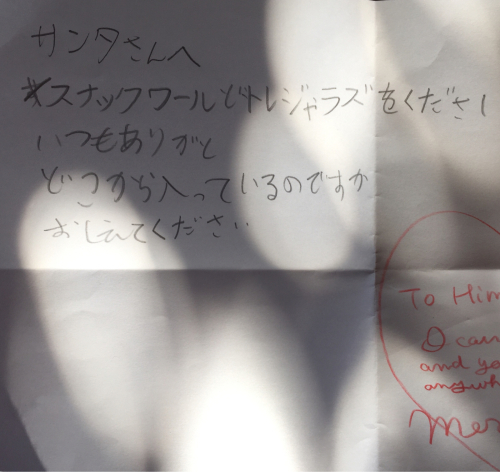 サンタさんへ
スナックワールドトレジャラズをくださ
いつもありがと
どこから入っているのですか
おしえてください
To Him
I can
and yo
anywh
Mer